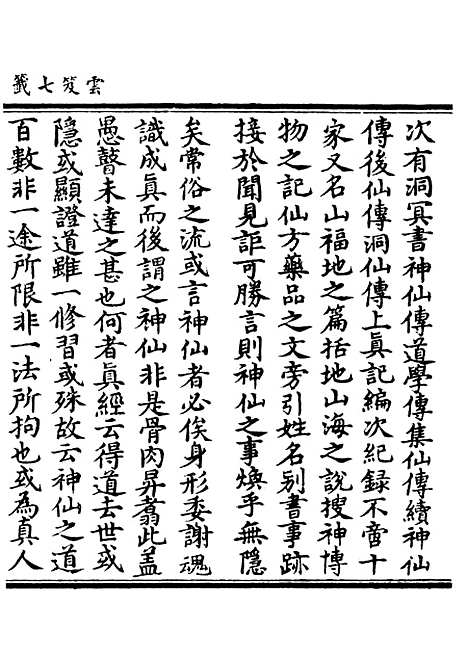 雲笈七籤
次有洞冥書神仙傳道學傳集仙傳續神仙
傳後仙傳洞仙傳上眞記編次紀録不啻十
家又名山福地之篇括地山海之說搜神博
物之記仙方藥品之文旁引姓名别書事跡
接於聞見詎可勝言則神仙之事煥乎無隱
矣常俗之流或言神仙者必俟身形委謝魂
識成眞而後謂之神仙非是骨肉昇翥此蓋
愚瞽未達之甚也何者眞經云得道去世或
隱或顯證道雖一修習或殊故云神仙之道
百數非一途所限非一法所拘也或為真人